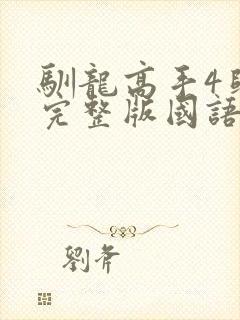 馴龍高手4
完整版國語
劉斧